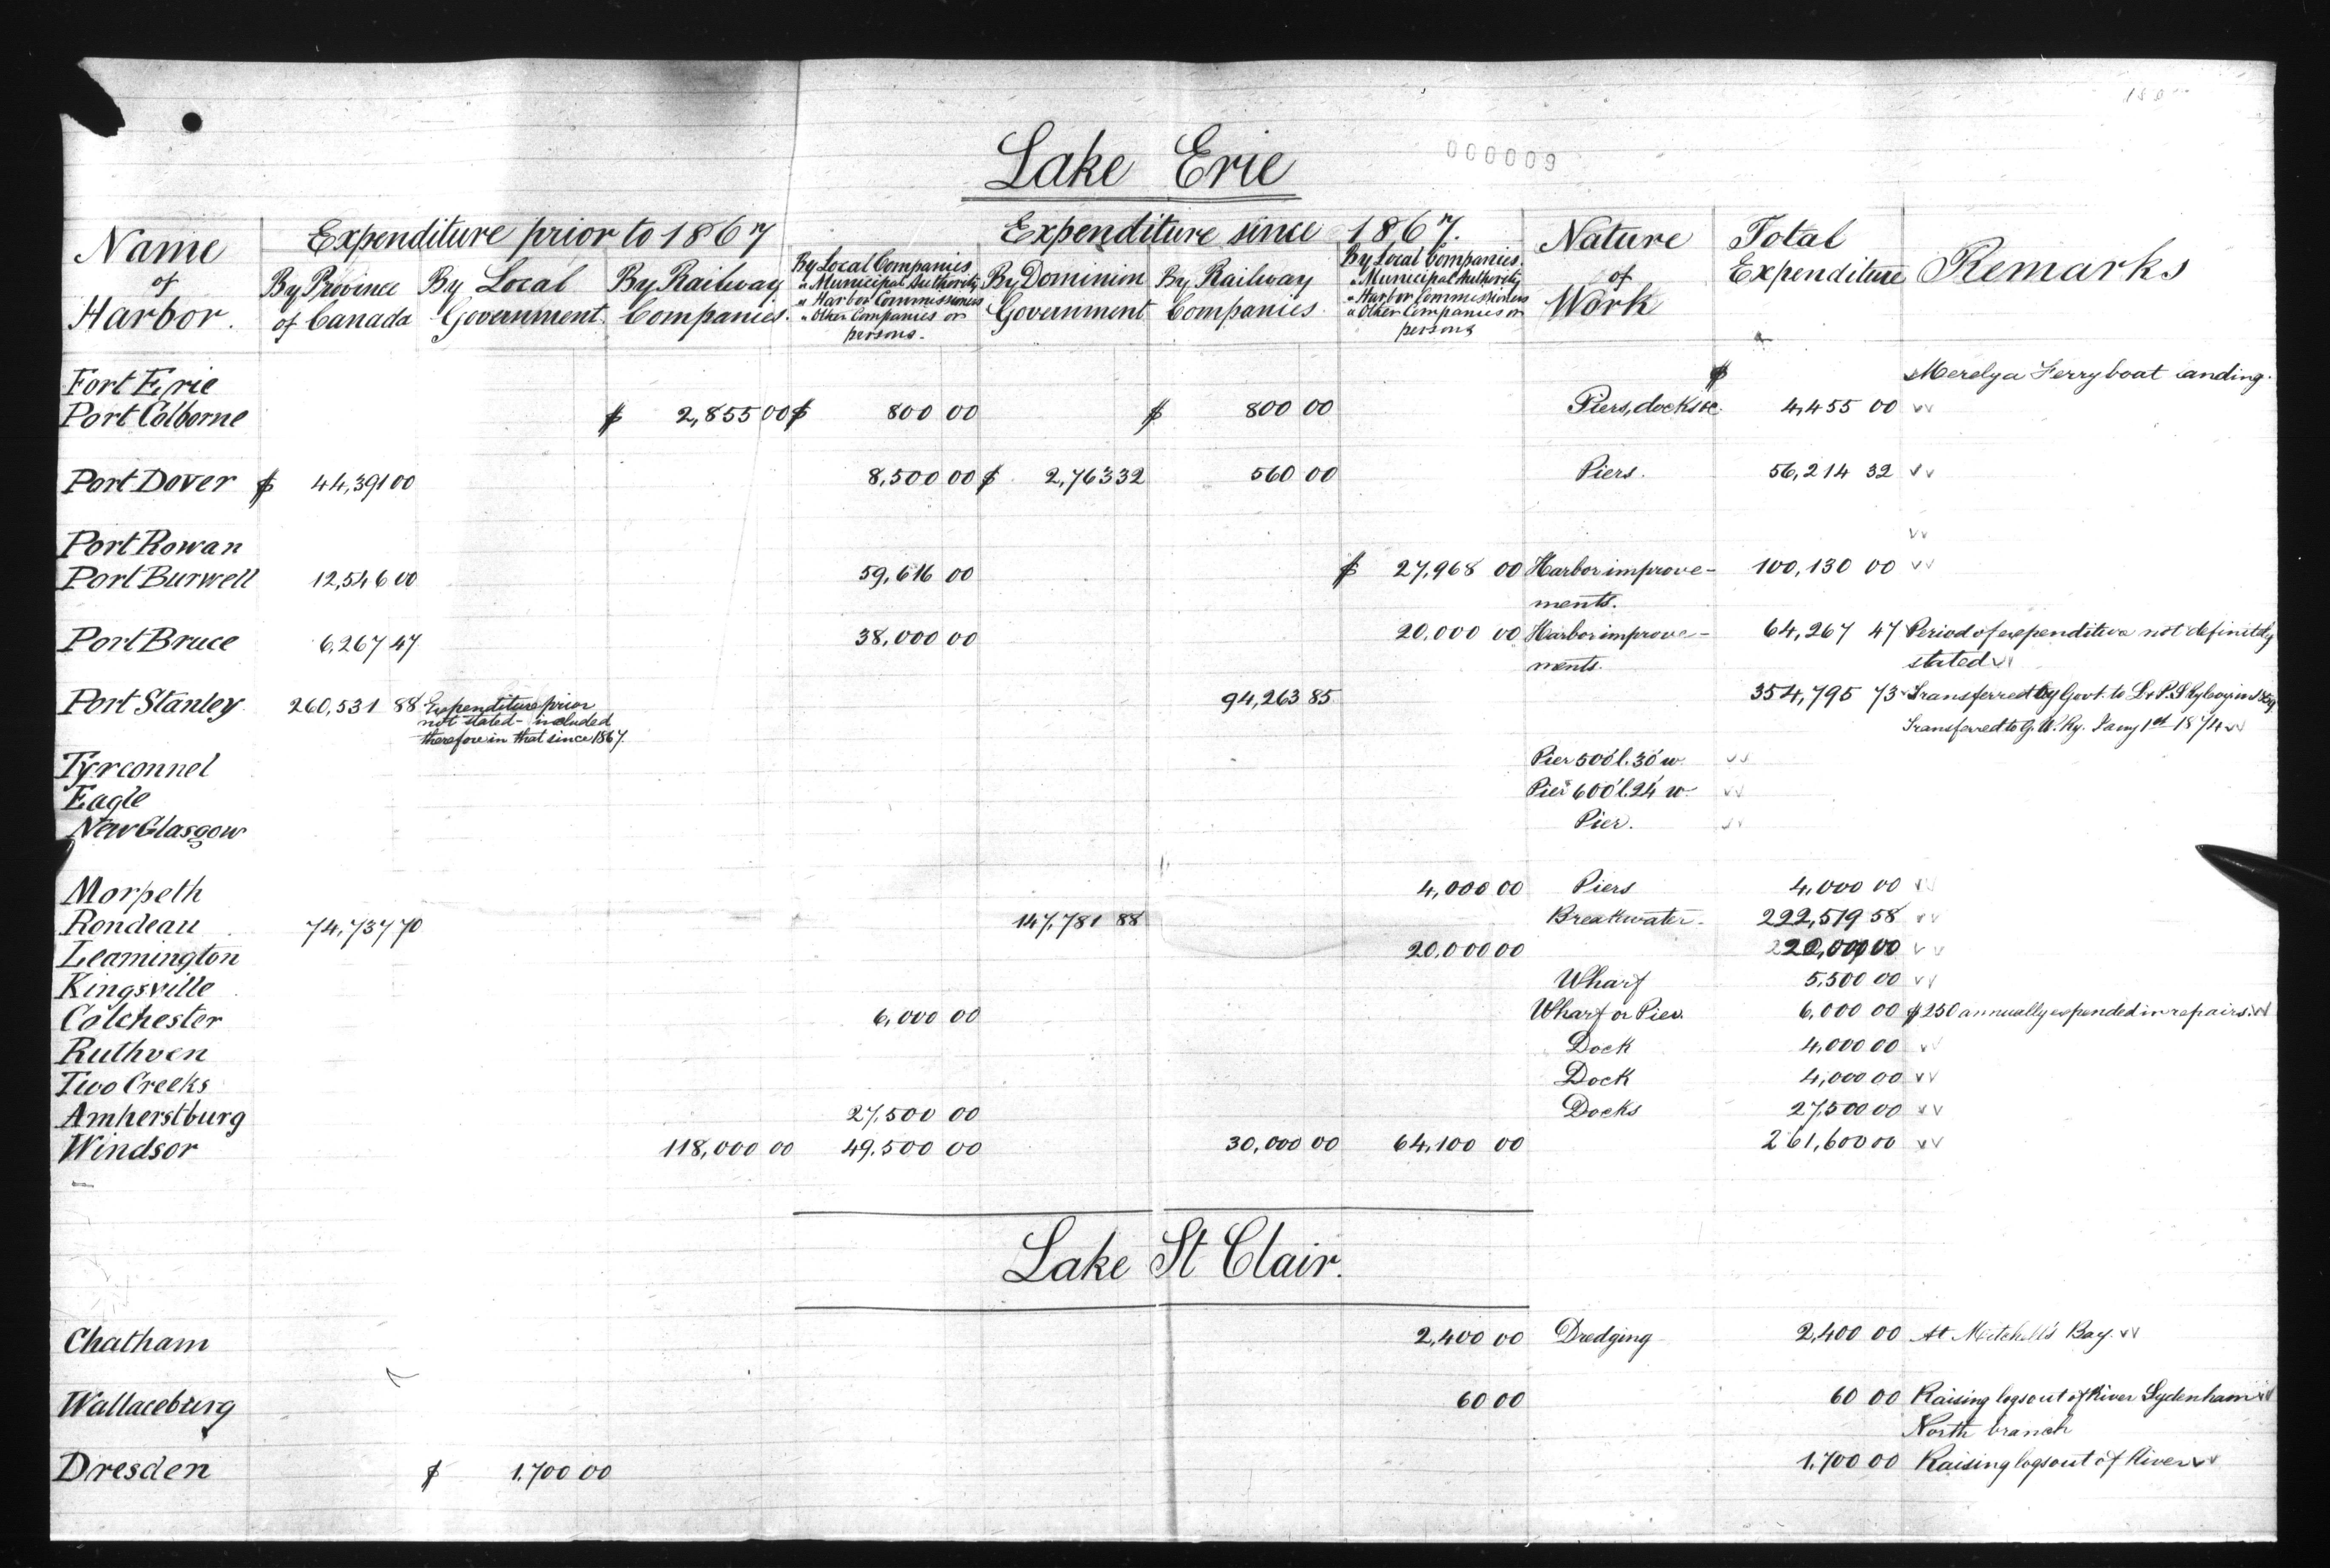 000009
Lake Erie
Name of Harbor. Expenditure prior to 1867 Expenditure since 1867. Nature of Work Total Expenditure Remarks
By Province of Canada By Local Government By Railway Companies. By Local Companies " Municipal Authority " Harbor Commissioners " Other Companies or persons. By Dominion Government By Railway Companies. By Local Companies. " Municipal Authority " Harbor Commissioners " Other Companies or persons
Fort Erie $ Merely a Ferry boat landing.
Port Colborne $ 2,855 00 $ 800 00 $ 800 00 Piers, docks &c. 4,455 00 vv
Port Dover $ 44,391 00 8,500 00 $ 2,763 32 560 00 Piers. 56,214 32 vv
Port Rowan vv
Port Burwell 12,546 00 59,616 00 $ 27,968 00 Harbor improve- 100,130 00 vv
ments.
Port Bruce 6,267 47 38,000 00 20,000 00 Harbor improve- 64,267 47 Period of expenditure not definitely
ments. stated vv
Port Stanley 260,531 88 Expenditure prior 94,263 85 354,795 73 Transferred by Govt. to L & P.S Ry Coy in
not stated - included Transferred to G. W. Ry. Jany 1st 1874 vv
therefore in that since 1867.
Tyrconnel Pier 500' l. 30' w. vv
Eagle Pier 600' l. 24' w. vv
New Glasgow Pier. vv
Morpeth 4,000 00 Piers 4,000 00 vv
Rondeau 74,737 70 147,781 88 Breakwater. 222,519 58 vv
Leamington 20,000 00 20,000 00 vv
Kingsville Wharf 5,500 00 vv
Colchester 6,000 00 Wharf or Pier. 6,000 00 $250 annually expended in repairs. vv
Ruthven Dock 4,000 00 vv
Two Creeks Dock 4,000 00 vv
Amherstburg 27,500 00 Docks 27,500 00 vv
Windsor 118,000 00 49,500 00 30,000 00 64,100 00 261,600 00 vv
Lake St Clair.
Chatham 2,400 00 Dredging 2,400 00 At Mitchell's Bay. vv
Wallaceburg 60 00 60 00 Raising logs out of River Sydenham vv
North branch
Dresden $ 1,700 00 1,700 00 Raising logs out of River vv